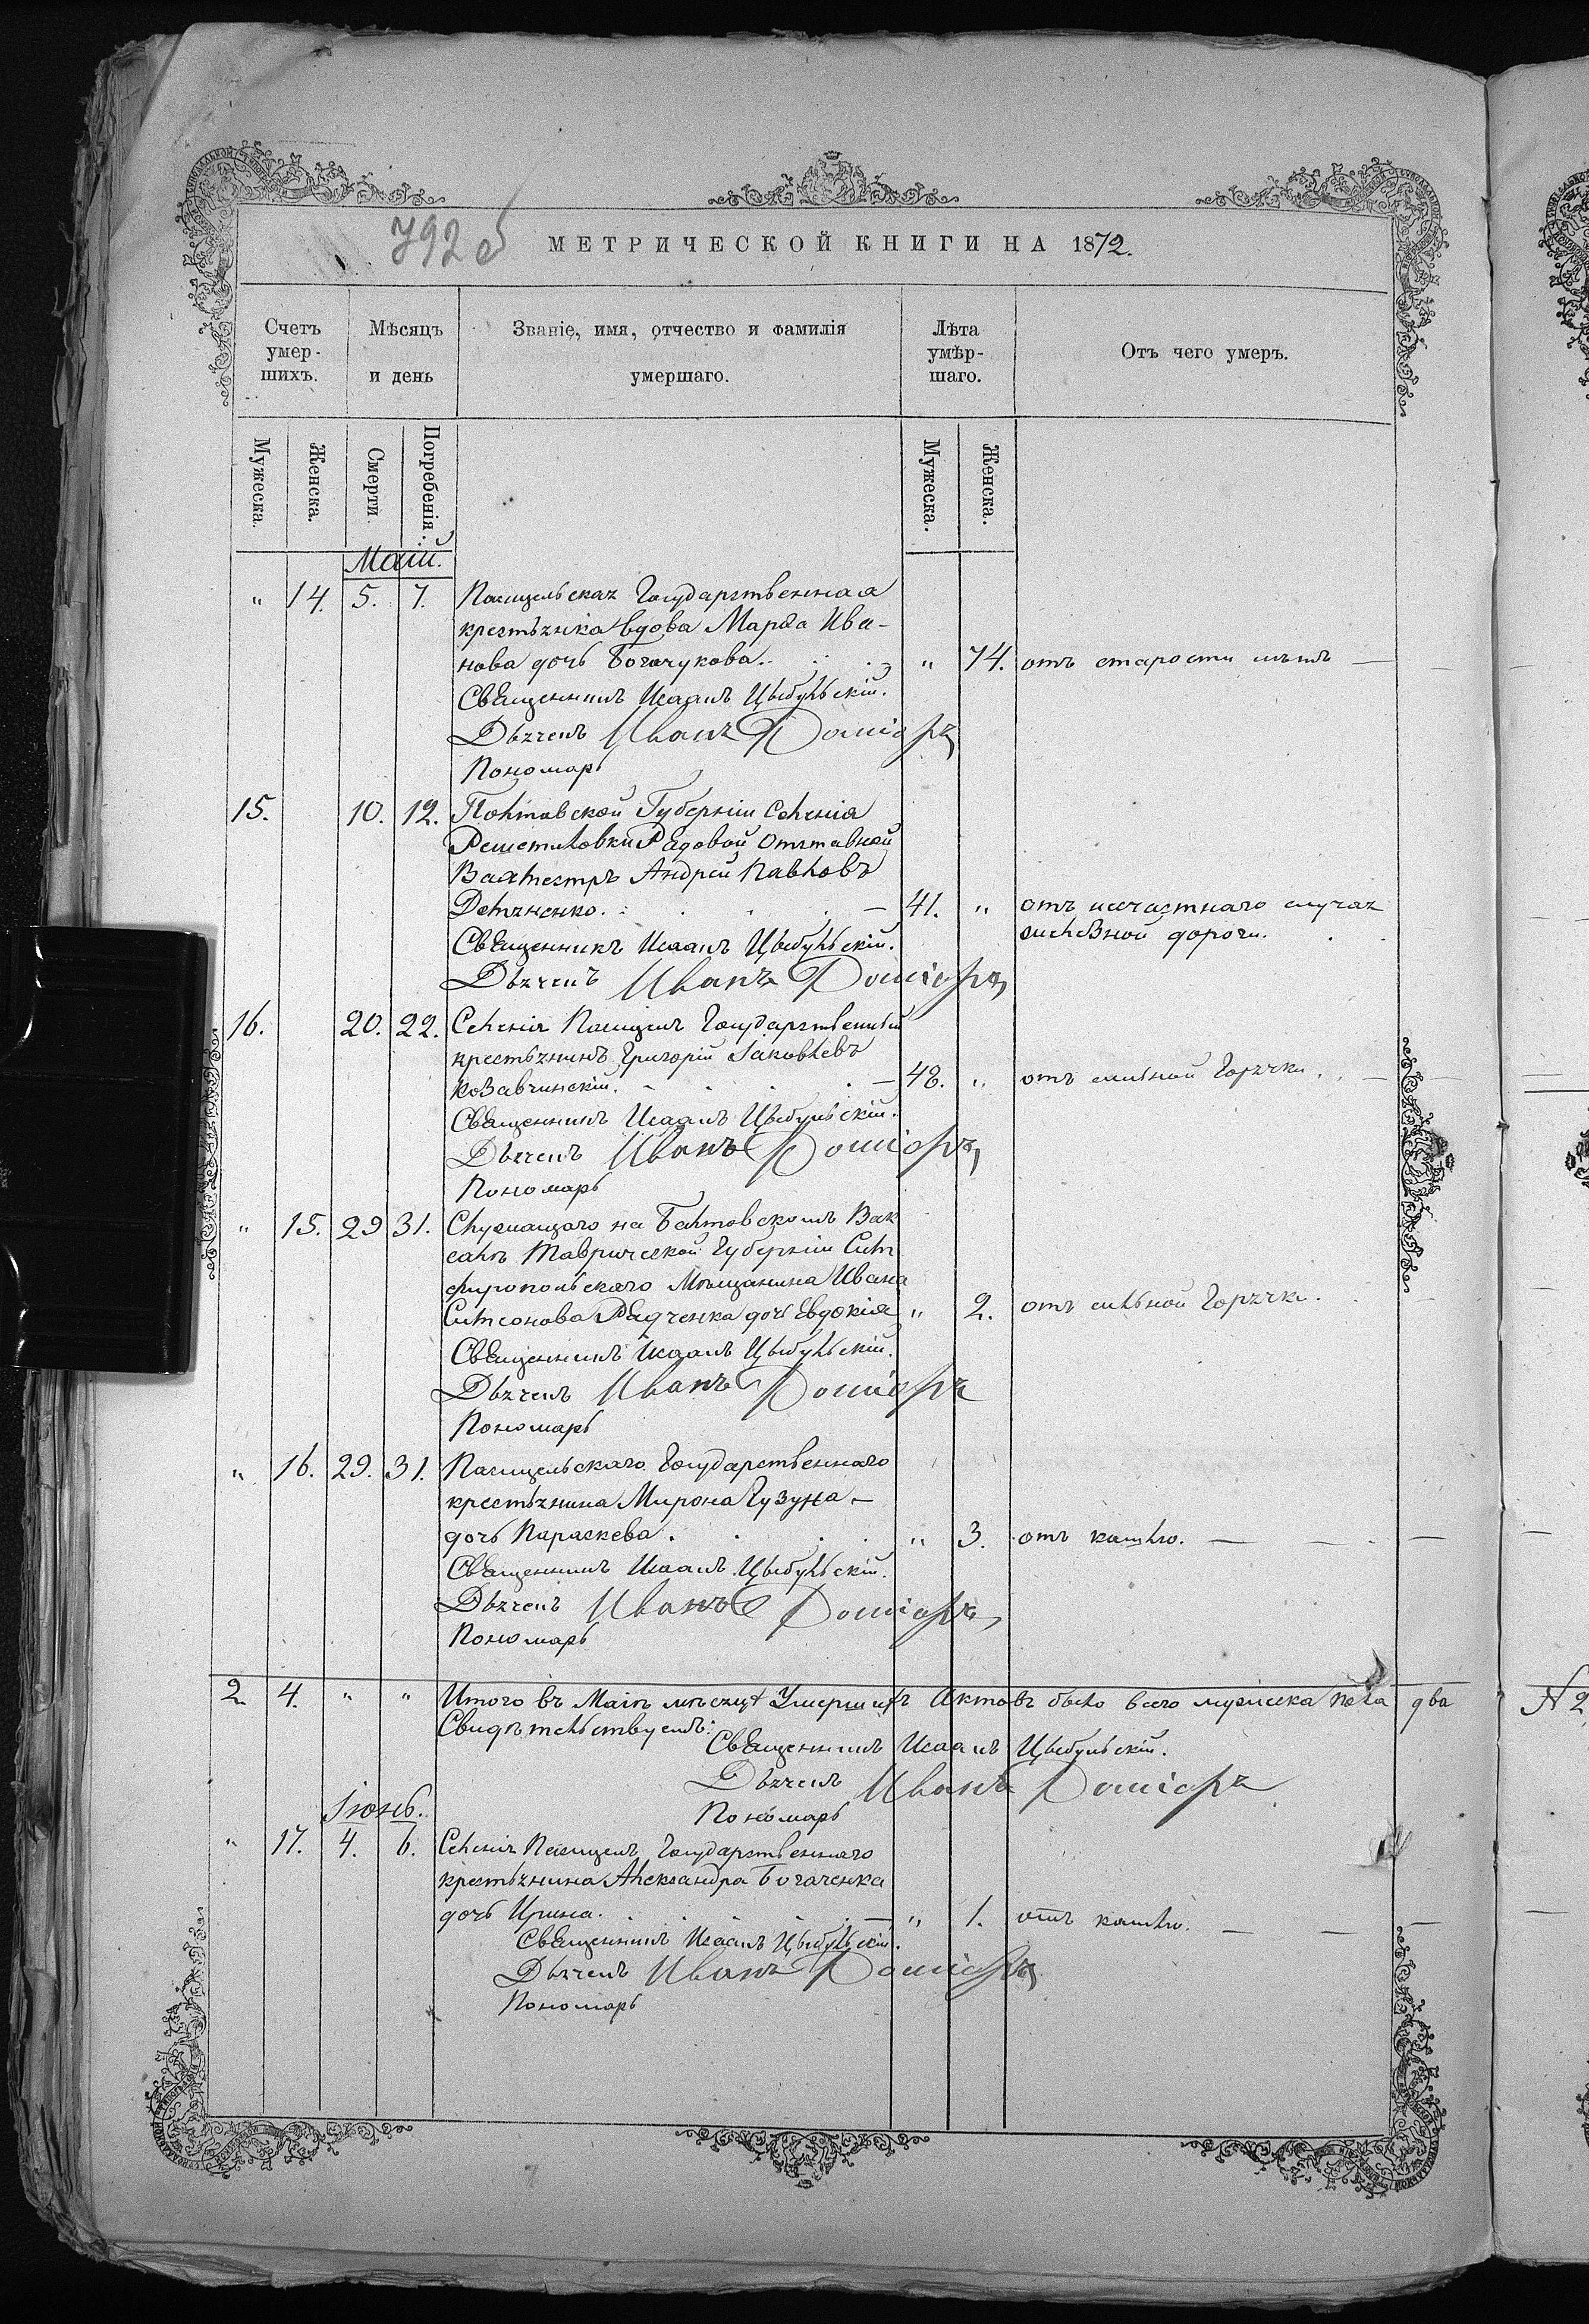 792 об
МЕТРИЧЕСКОЙ КНИГИ НА 1872.
Счетъ умер-шихъ.
Мѣсяцъ и день
Званіе, имя, отчество и фамилія умершаго.
Лѣта умѣр-шаго.
Отъ чего умеръ.
Мужеска.
Женска.
Смерти.
Погребенія.
Мужеска.
Женска.
Маій.
" 14. 5. 7. Государственная
крестьянка вдова Марѳа Ива-
нова дочь Богачукова. " 74. отъ старости лѣтъ
Священникъ Исаакъ Цыбульскій.
Дьячекъ Иванъ
Пономарь
15. 10. 12. Полтавской Губерніи Селенія
Решетиловки Рядовой Отставной
Вахтестръ Андрей Павловъ
41. " отъ несчастнаго случая
Священникъ Исаакъ Цыбульскій. дороги.
Дьячекъ Иванъ
16. 20. 22. Селенія Государственный
крестьянинъ Григорій Іаковлевъ
Козавчинскій. 48. " отъ сильной Горячки.
Священникъ Исаакъ Цыбульскій.
Дьячекъ Иванъ
Пономарь
" 15. 29 31. Служащаго на Балтовскомъ Вок
салѣ Таврической Губерніи Сим
фиропольскаго Мѣщанина Ивана
Симонова Радченка дочь Евдокія " 2. отъ сильной Горячки.
Священникъ Исаакъ Цыбульскій.
Дьячекъ Иванъ
Пономарь
" 16. 29. 31. Государственнаго
крестьянина Мирона Гузуна
дочь Параскева. " 3. отъ кашлю.
Священникъ Исаакъ Цыбульскій.
Дьячекъ Иванъ
Пономарь
2. 4. " " Итого въ Маіѣ мѣсяцѣ Умершихъ Актовъ было всего мужеска пола два
Свидѣтельствуемъ:
Священникъ Исаакъ Цыбульскій.
Дьячекъ Иванъ
Пономарь
Іюнь.
" 17. 4. 6. Селенія Государственнаго
крестьянина Александра Богаченка
дочь Ирина. " 1. отъ кашлю.
Священникъ Исаакъ Цыбульскій.
Дьячекъ Иванъ
Пономарь